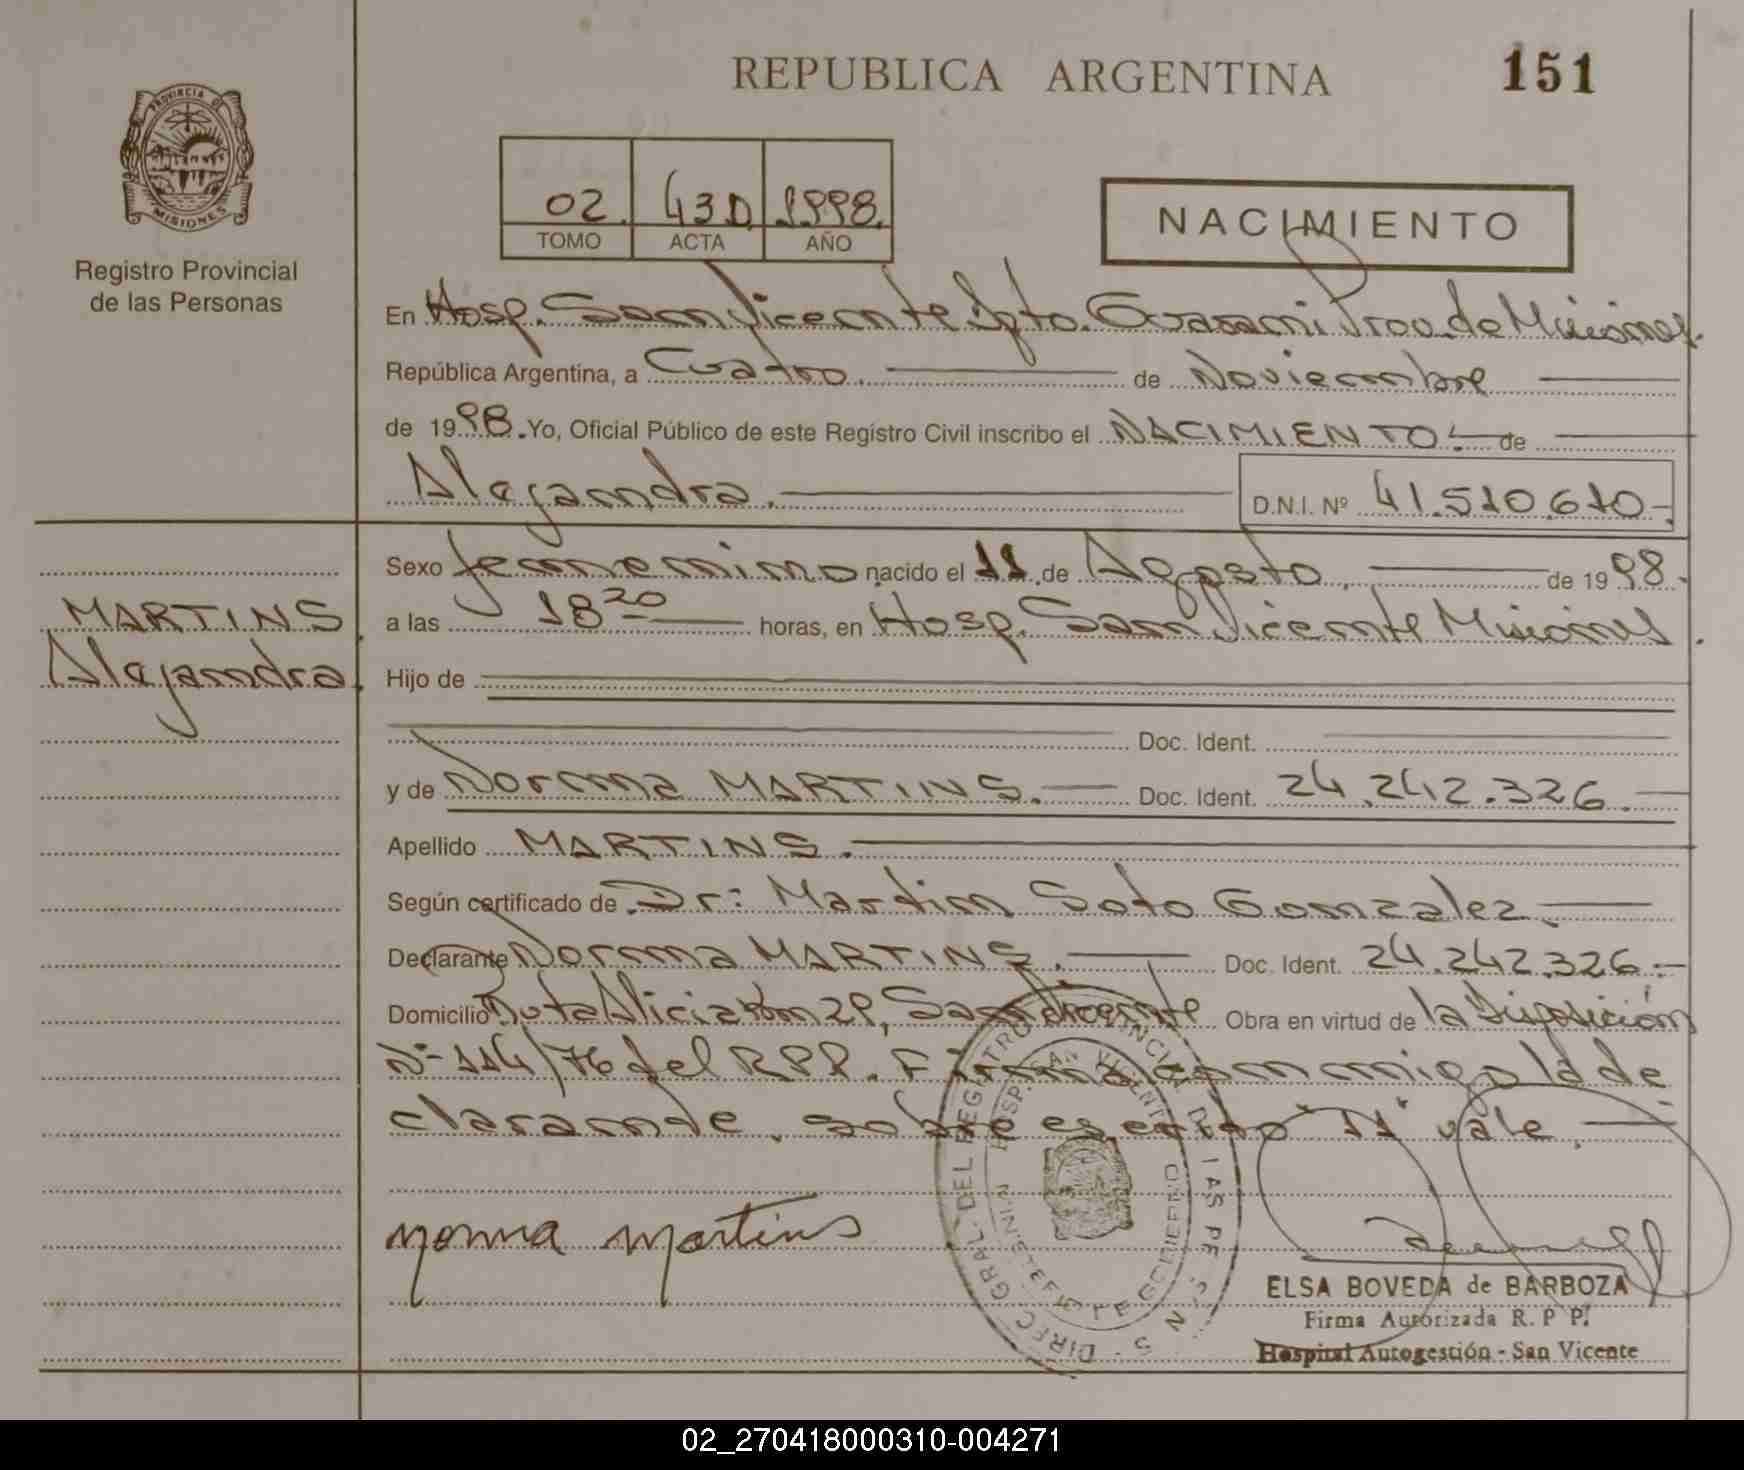 REPUBLICA ARGENTINA
151
PROVINCIA D
MISIONES
Registro Provincial
de las Personas
02. 430 1998.
TOMO ACTA AÑO
NACIMIENTO
En Hosp. San Vicente Dpto. Guarani Prov. de Misiones.
República Argentina, a Cuatro. de Noviembre
de 1998. Yo, Oficial Público de este Registro Civil inscribo el NACIMIENTO de
Alejandra. D.N.I. Nº 41.510.610-
Sexo femenino nacido el 11 de Agosto. de 1998.
a las 18 20 horas, en Hosp. San Vicente Misiones.
MARTINS
Alejandra
Hijo de
Doc. Ident.
y de Norma MARTINS. Doc. Ident. 24.242.326.
Apellido MARTINS.
Según certificado de Dr: Martin Soto Gonzalez.
Declarante Norma MARTINS. Doc. Ident. 24.242.326.-
Domicilio Ruta Alicia Km 29, San Vicente Obra en virtud de la Disposición
Nº 114/76 del RPP. Firma conmigo la de
clarante. sobre escrito "11" vale.
Norma Martins
DIREC. GRAL. DEL REGISTRO PROVINCIAL DE LAS PERSONAS
HOSP. SAN VICENTE
ELSA BOVEDA de BARBOZA
Firma Autorizada R. P P.
Hospital Autogestión - San Vicente
02_270418000310-004271